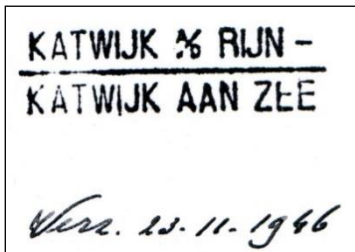 KATWIJK a/d RIJN -
KATWIJK AAN ZEE
Verz. 23-11-1946